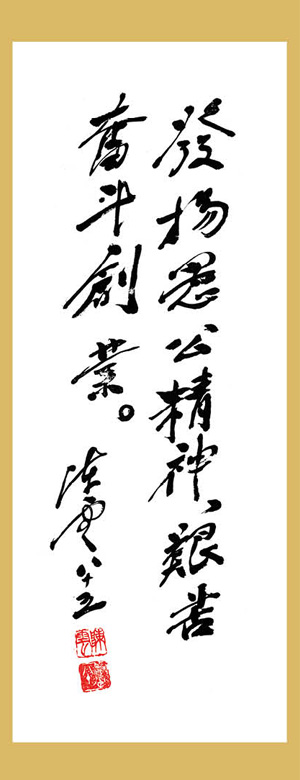 發揚愚公精神、艱苦
奮斗創業。
陈雲八十五